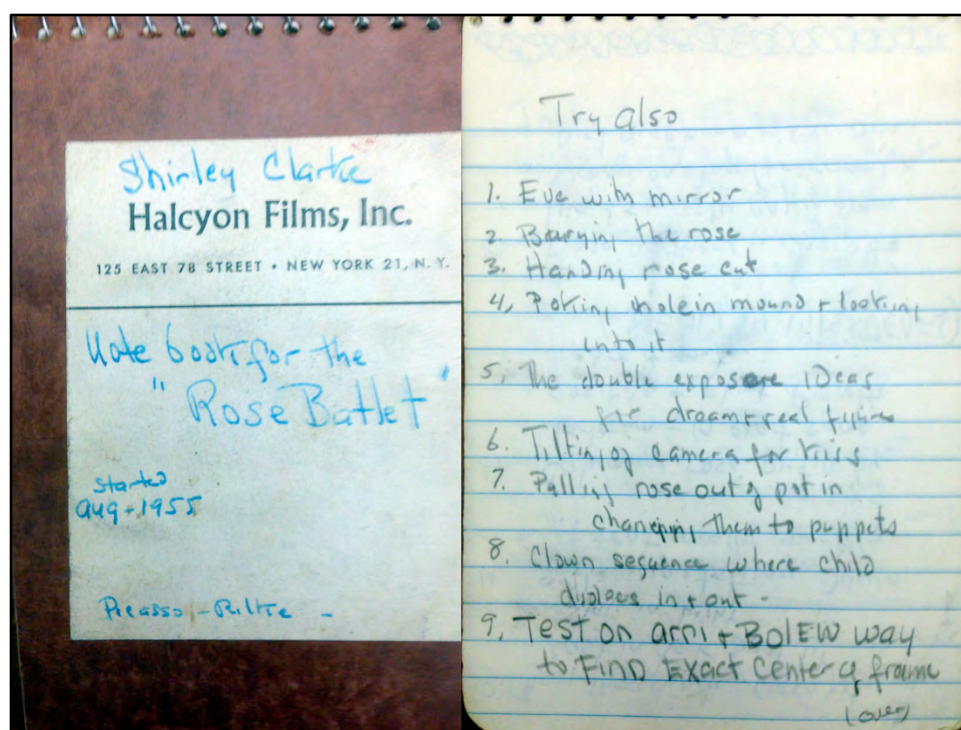 Shirley Clarke
Halcyon Films, Inc.
125 EAST 78 STREET • NEW YORK 21, N. Y.
Note book for the
"Rose Ballet"
Started
Aug - 1955
Picasso - Rilke -
Try also
1. Eve with mirror
2. Burying the rose
3. Handing rose out
4, Poking hole in mound + looking
into it
5, The double exposure ideas
for dream + real figures
6. Tilting of camera for kiss
7. Pulling rose out of pot in
changing them to puppets
8. Clown sequence where child
in + out -
9, Test on arri + BolEW way
to FIND Exact Center of frame
(over)